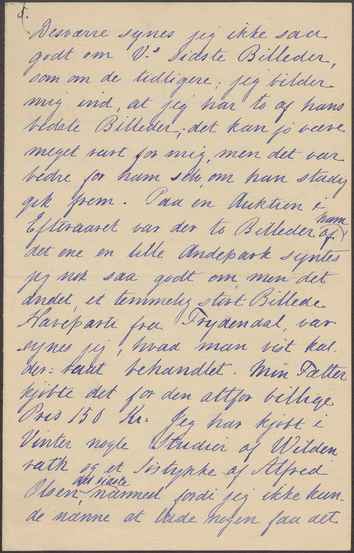 5.
Desværre synes jeg ikke saa
godt om V.s sidste Billeder,
som om de tidligere; jeg bilder
mig ind, at jeg har to af hans
bedste Billeder; det kan jo være
meget rart for mig, men det var
bedre for ham selv, om han stadig
gik frem. Paa en Auktion i
Efteraaret var der to Billeder af ham,
det ene en lille Andepark syntes
jeg nok saa godt om, men det
andet, et temmelig stort Billede
Haveparti fra Frydendal, var
synes jeg, hvad man vist kal-
der: tamt behandlet. Min Fætter
kjøbte det for den altfor billige
Pris 150 Kr. Jeg har kjøbt i
Vinter nogle Studier af Wilden
rath og et Søstykke af Alfred
Olsen, det sidste nærmest, fordi jeg ikke kun
de nænne at lade nogen faa det